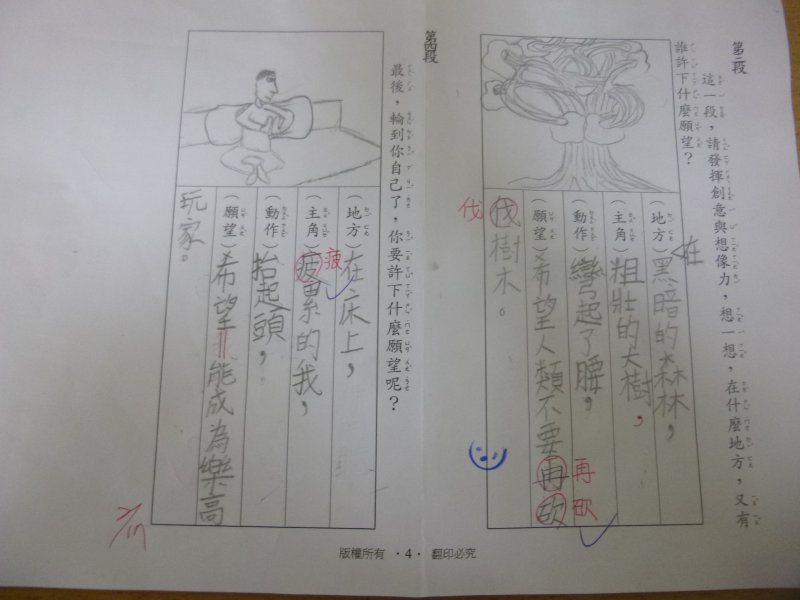 第三段
這一段，請發揮創意與想像力，想一想，在什麼地方，又有
誰許下什麼願望？
在
（地方）黑暗的森林，
（主角）粗壯的大樹，
（動作）彎起了腰，
（願望）希望人類不要再砍
再砍
伐樹木。
伐
第四段
最後，輪到你自己了，你要許下什麼願望呢？
（地方）在床上，
疲
（主角）疲累的我，
（動作）抬起頭，
（願望）希望能成為樂高
玩家。
版權所有 ·4· 翻印必究